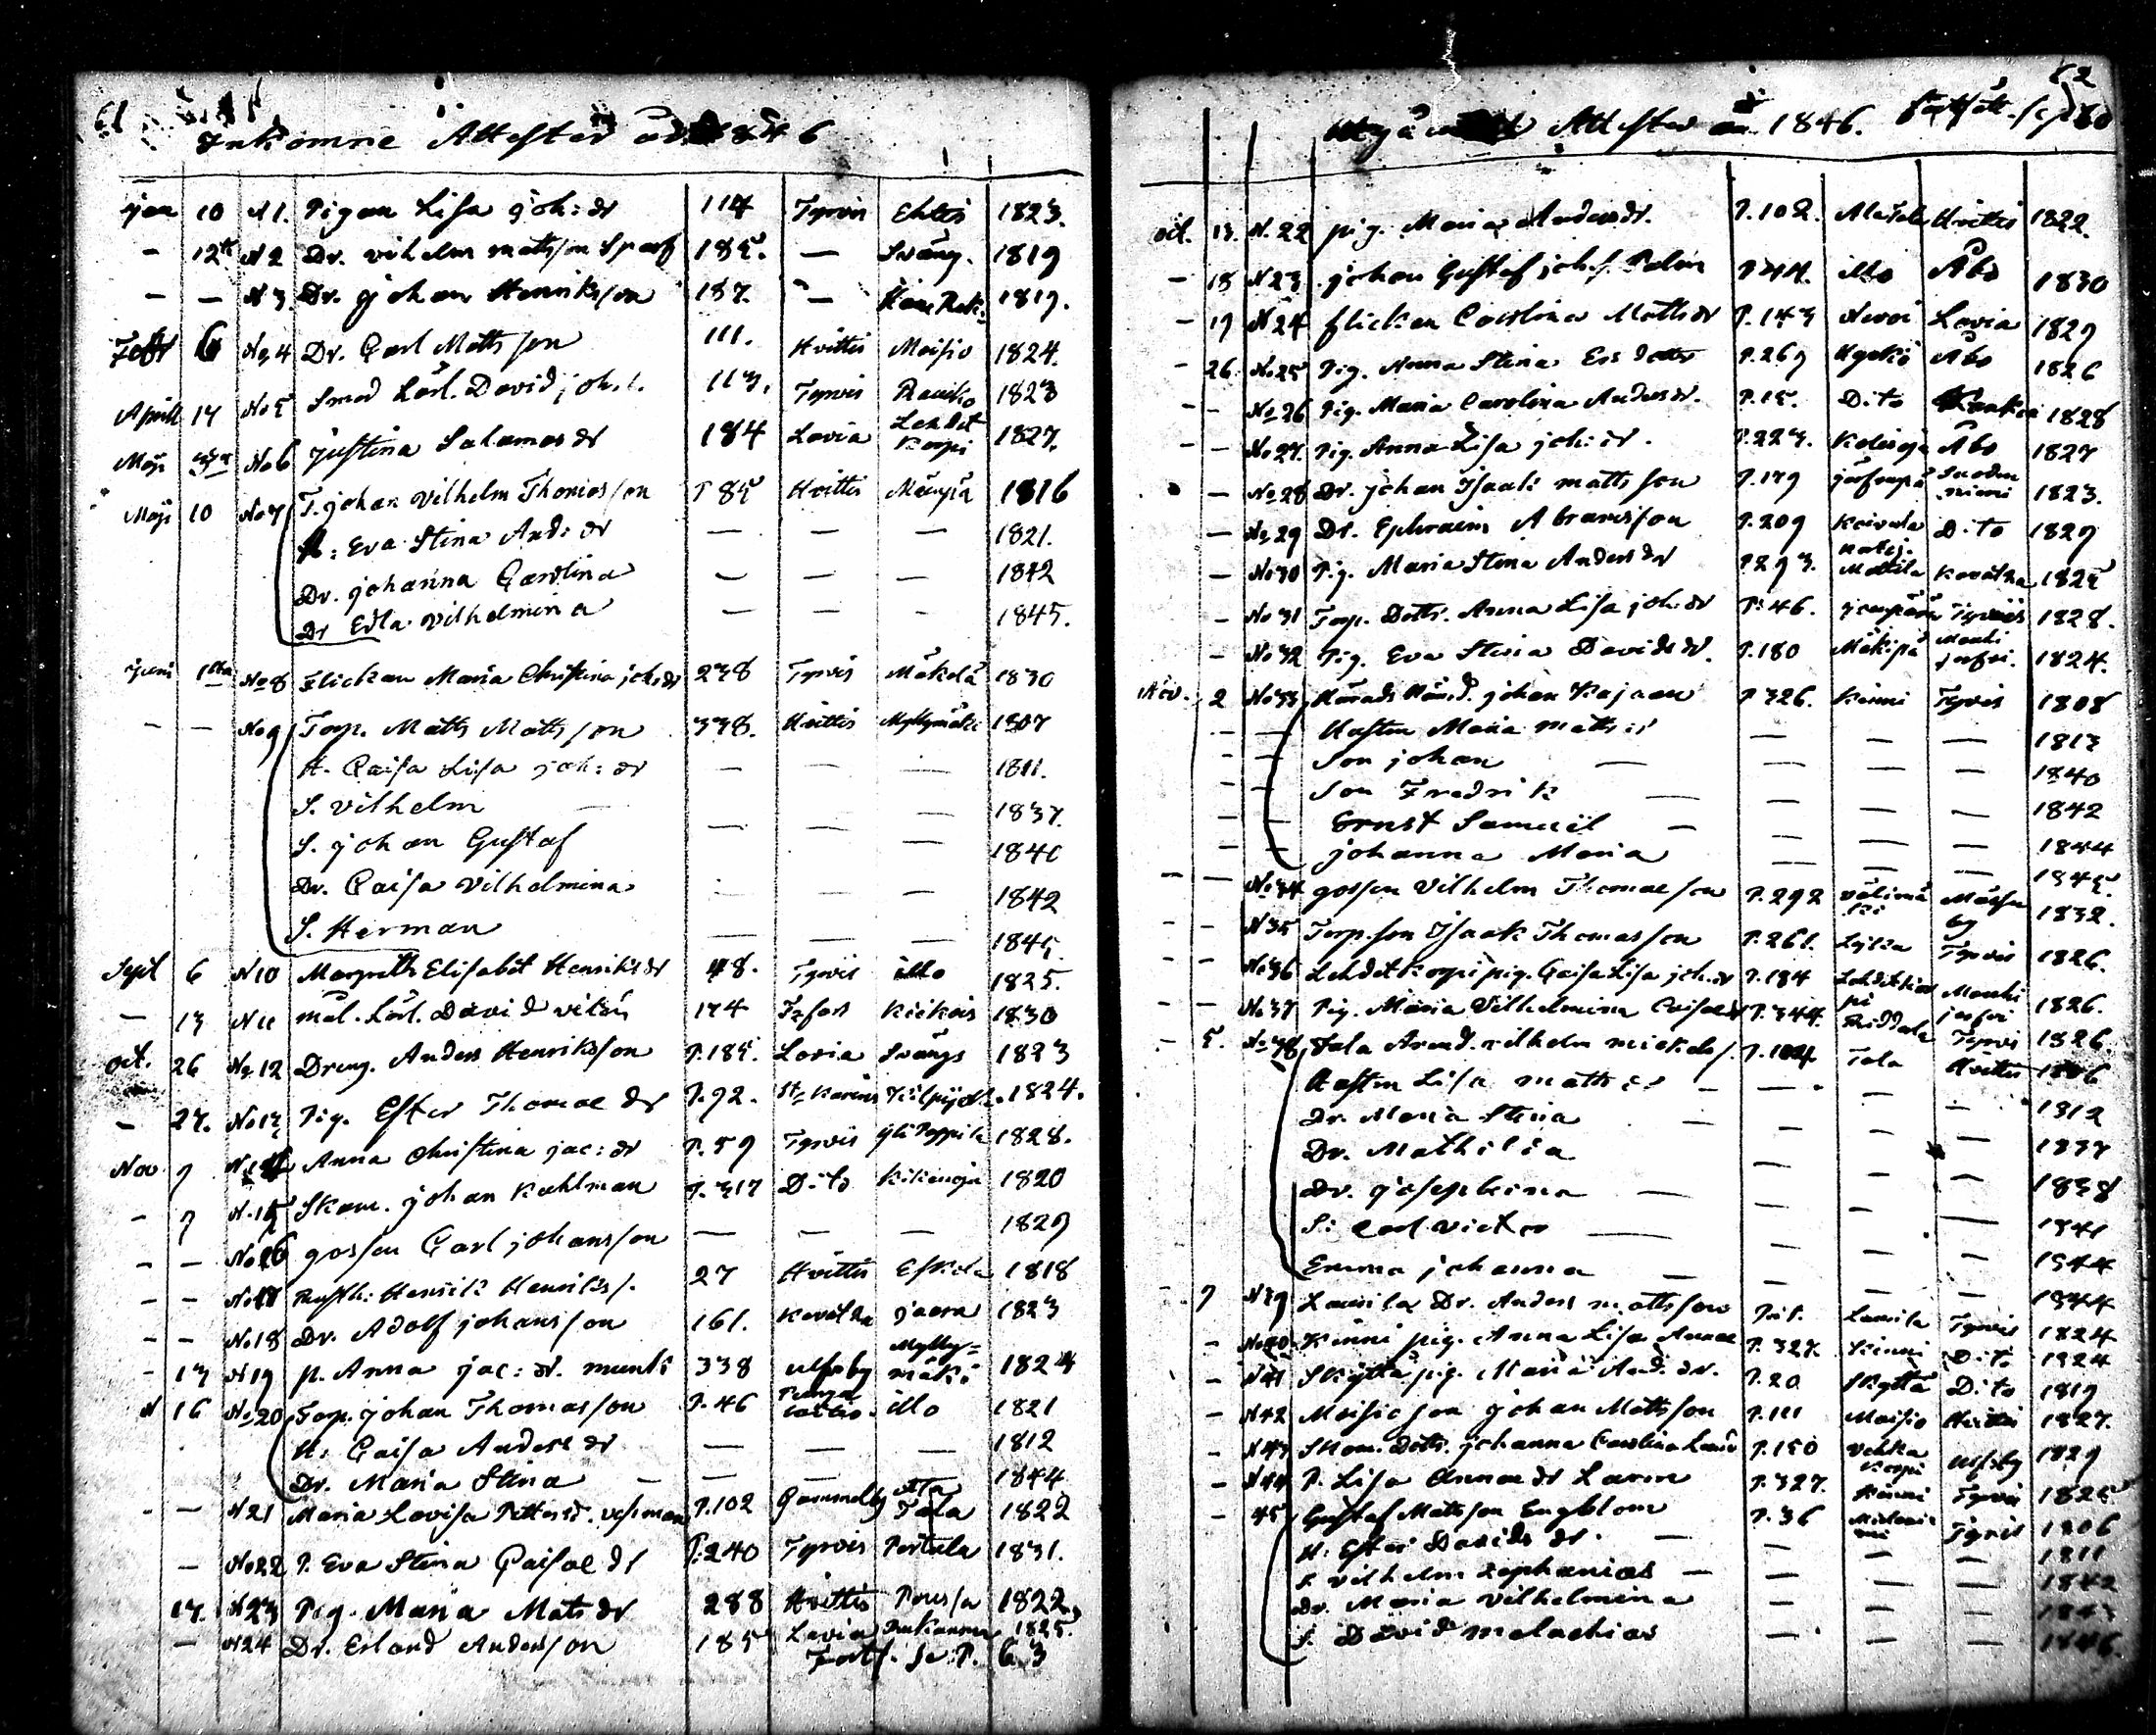 61
Inkomne Attester år 1846
Jan 10 N1. Pigan Lisa Joh: dr 114 Tyrvis Ehtis 1823.
— 12te N2 Dr. Vilhelm Mattsson Sparf 185. — Swäng. 1819
— — N3. Dr. Johan Henriksson 187. — 1819.
Febr 6 No4 Dr. Carl Matts son 111. Hvittis Moisio 1824.
Aprill 14 No5 Smed Lärl. David joh. s. 113. Tyrvis Rauko 1823
Maji No6 Justina Salamos dr 184 Lavia Lehdet korpi 1827.
Maji 10 No7 T. johan Vilhelm Thomas son P 85 Hvittis Mäenpää 1816
H: Eva Stina And: dr — — — 1821.
Dr. johanna Carolina — — — 1842
Dr Edla Vilhelmina — — — 1845.
Juni 1sta No8 Flickan Maria Christina joh: dr 238 Tyrvis Mäkelä 1830
— — No9 Torp. Matts Matts son 338. Hvittis Myllymäki 1807
H. Caisa Lisa joh: dr — — — 1811.
S. Vilhelm — — — 1837.
S. johan Gustaf — — — 1840
Dr. Caisa Vilhelmina — — — 1842
S. Herman — — — 1845.
Sept 6 N10 Margreth Elisabet Henriks dr 48. Tyrvis illo 1825.
— 13 N11 mål. Lärl. David vilén 174 Kiikois 1830
oct. 26 No.12 Dreng. Anders Henriksson P.185. Lavia Swängs 1823
— 27. No13 Pig. Ester Thomae dr P.92. St Karins 1824.
Nov 7 N14 Anna Christina jac: dr P.59 Tyrvis 1828.
— 7 N.15 Skom. johan Kahlman P.317 Dito Kikenoja 1820
— — No16 gossen Carl johansson — — — 1829
— — No17 Rusth: Henrik Henriks s. 27 Hvittis Eskola 1818
— — No18 Dr. Adolf johansson 161. Kavolka Jaara 1823
— 13 N19 p. Anna jac: dr. munk 338 ulfsby Mylly= mäki 1824
N 16 No20 Torp. johan Thomasson P.46 illo 1821
H: Caisa Anders dr — — — 1812
Dr. Maria Stina — — — 1844
— — N21 Maria Lovisa Petters d. P.102 Gammelby Ala Tala 1822
— No22 P. Eva Stina Caisae dr P:240 Tyrvis Pertula 1831.
17. N23 Pig. Maria Mats dr 288 Hvittis Poussa 1822,
— N24 Dr. Erland Andersson 185 Lavia 1825.
Fortf. Se P. 63
62
Utgångne Attester år 1846. fortsätt. fr. p. 60
oct. 13. N.22 pig. Maria Anders dr. P.102. Alatala Hvittis 1822.
— 18 N23 johan Gustaf joh. s. Palin P 44. illo Åbo 1830
— 19 N24 flickan Carolina Matts dr P.143 Lavia 1829
— 26 No25 Pig. Anna Stina P.269 Åbo 1826
— — No26 Pig. Maria Carolina Anders dr. P.15. Dito 1828
— — No27. Pig. Anna Lisa joh: dr. P.223. Åbo 1827
— No28 Dr. johan Isaak matts son P.179 Suoden niemi 1823.
— No29 Dr. Ephraim Abramsson P.209 Koivula Dito 1829
— No30 Pig. Maria Stina Anders dr P293. Mattila Kavolka 1825
— No31 Torp. Dottr. Anna Lisa joh: dr P.46. Tyrvis 1828.
— No32 Pig. Eva Stina Davids dr. P.180 Mäkipä Mouhi jerfvi. 1824.
Nov. 2 No33 Härads Nämnd. johan Kajaan P 326. Kinni Tyrvis 1808
— — Hustru Maria matts dr — — — 1813
— — Son johan — — — — 1840
— — Son Fredrik — — — — 1842
— — Ernst Samuel — — — — 1844
— — johanna Maria — — — 1845.
— — No34 gossen Vilhelm Thomae son P.292 välimä ki Måssa by 1832.
— — N35 Torp. son Isaak Thomasson P.261. Tyrvis 1826.
— — No36 Lehdetkorpi pig. Caisa Lisa joh: dr P.184 Lehdetkor pi Mouhi jerfvi 1826.
— — No37 Pig. Maria Vilhelmina Caisae dr P.344. Riddala Tyrvis 1826.
— 5. No38 Tala Arend. vilhelm mickels s. P.104 Tala Hvittis 1806
Hustru Lisa matts dr — — — 1812
Dr. Maria Stina — — — — 1837
Dr. Mathilda — — — 1838
Dr. josephina — — — — 1841
S: Carl Victor — — — — 1844
Emma johanna — — — — 1844
— 7 N39 Laurila Dr. Anders mattsson Laurila Tyrvis 1824
— No40 Kinni pig. Anna Lisa Annae P.327. Kinni Dito 1824
— N41 Skyttä pig. Maria And: dr. P.20 Skyttä Dito 1819
— N42 Moisio son johan Mattsson P.111 Moisio Hvittis 1827.
— N43 Skom. Dottr. johanna Carolina P.150 Vehka korpi ulfsby 1829
— N44 P. Lisa Annae dr Laurn P.327. Kinni Tyrvis 1825
— 45 Gustaf Mattsson Engblom P.36 Tyrvis 1806
H: Ester Davids dr — — — — 1811
S. vilhelm Zephanias — — — — 1842
Dr. Maria Vilhelmina — — — 1843
S. David malachias — — — 1846.